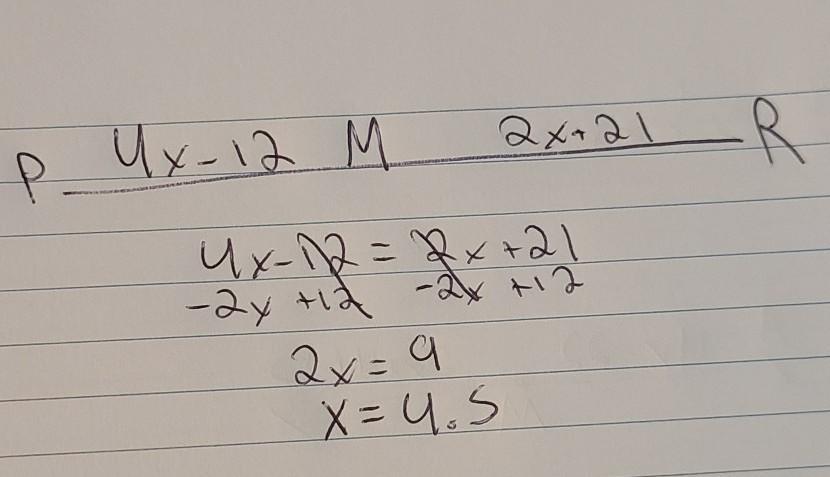 P 4x-12 M 2x+21 R
4x-12 = 2x+21
-2x +12 -2x +12
2x = 9
x = 4.5